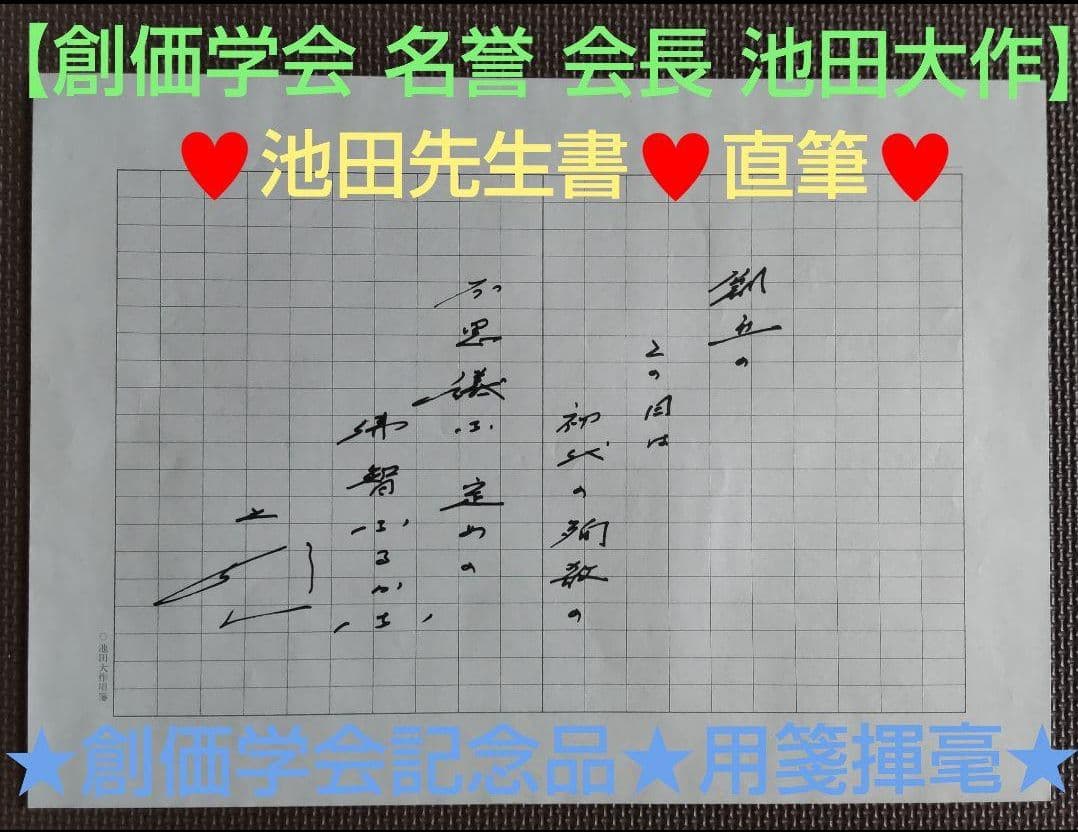 【創価学会 名誉 会長 池田大作】
♥池田先生書♥直筆♥
創立の
この日は
初代の殉教の
不思議な 定めの
佛智なるかな
○池田大作用箋
★創価学会記念品★用箋揮毫★